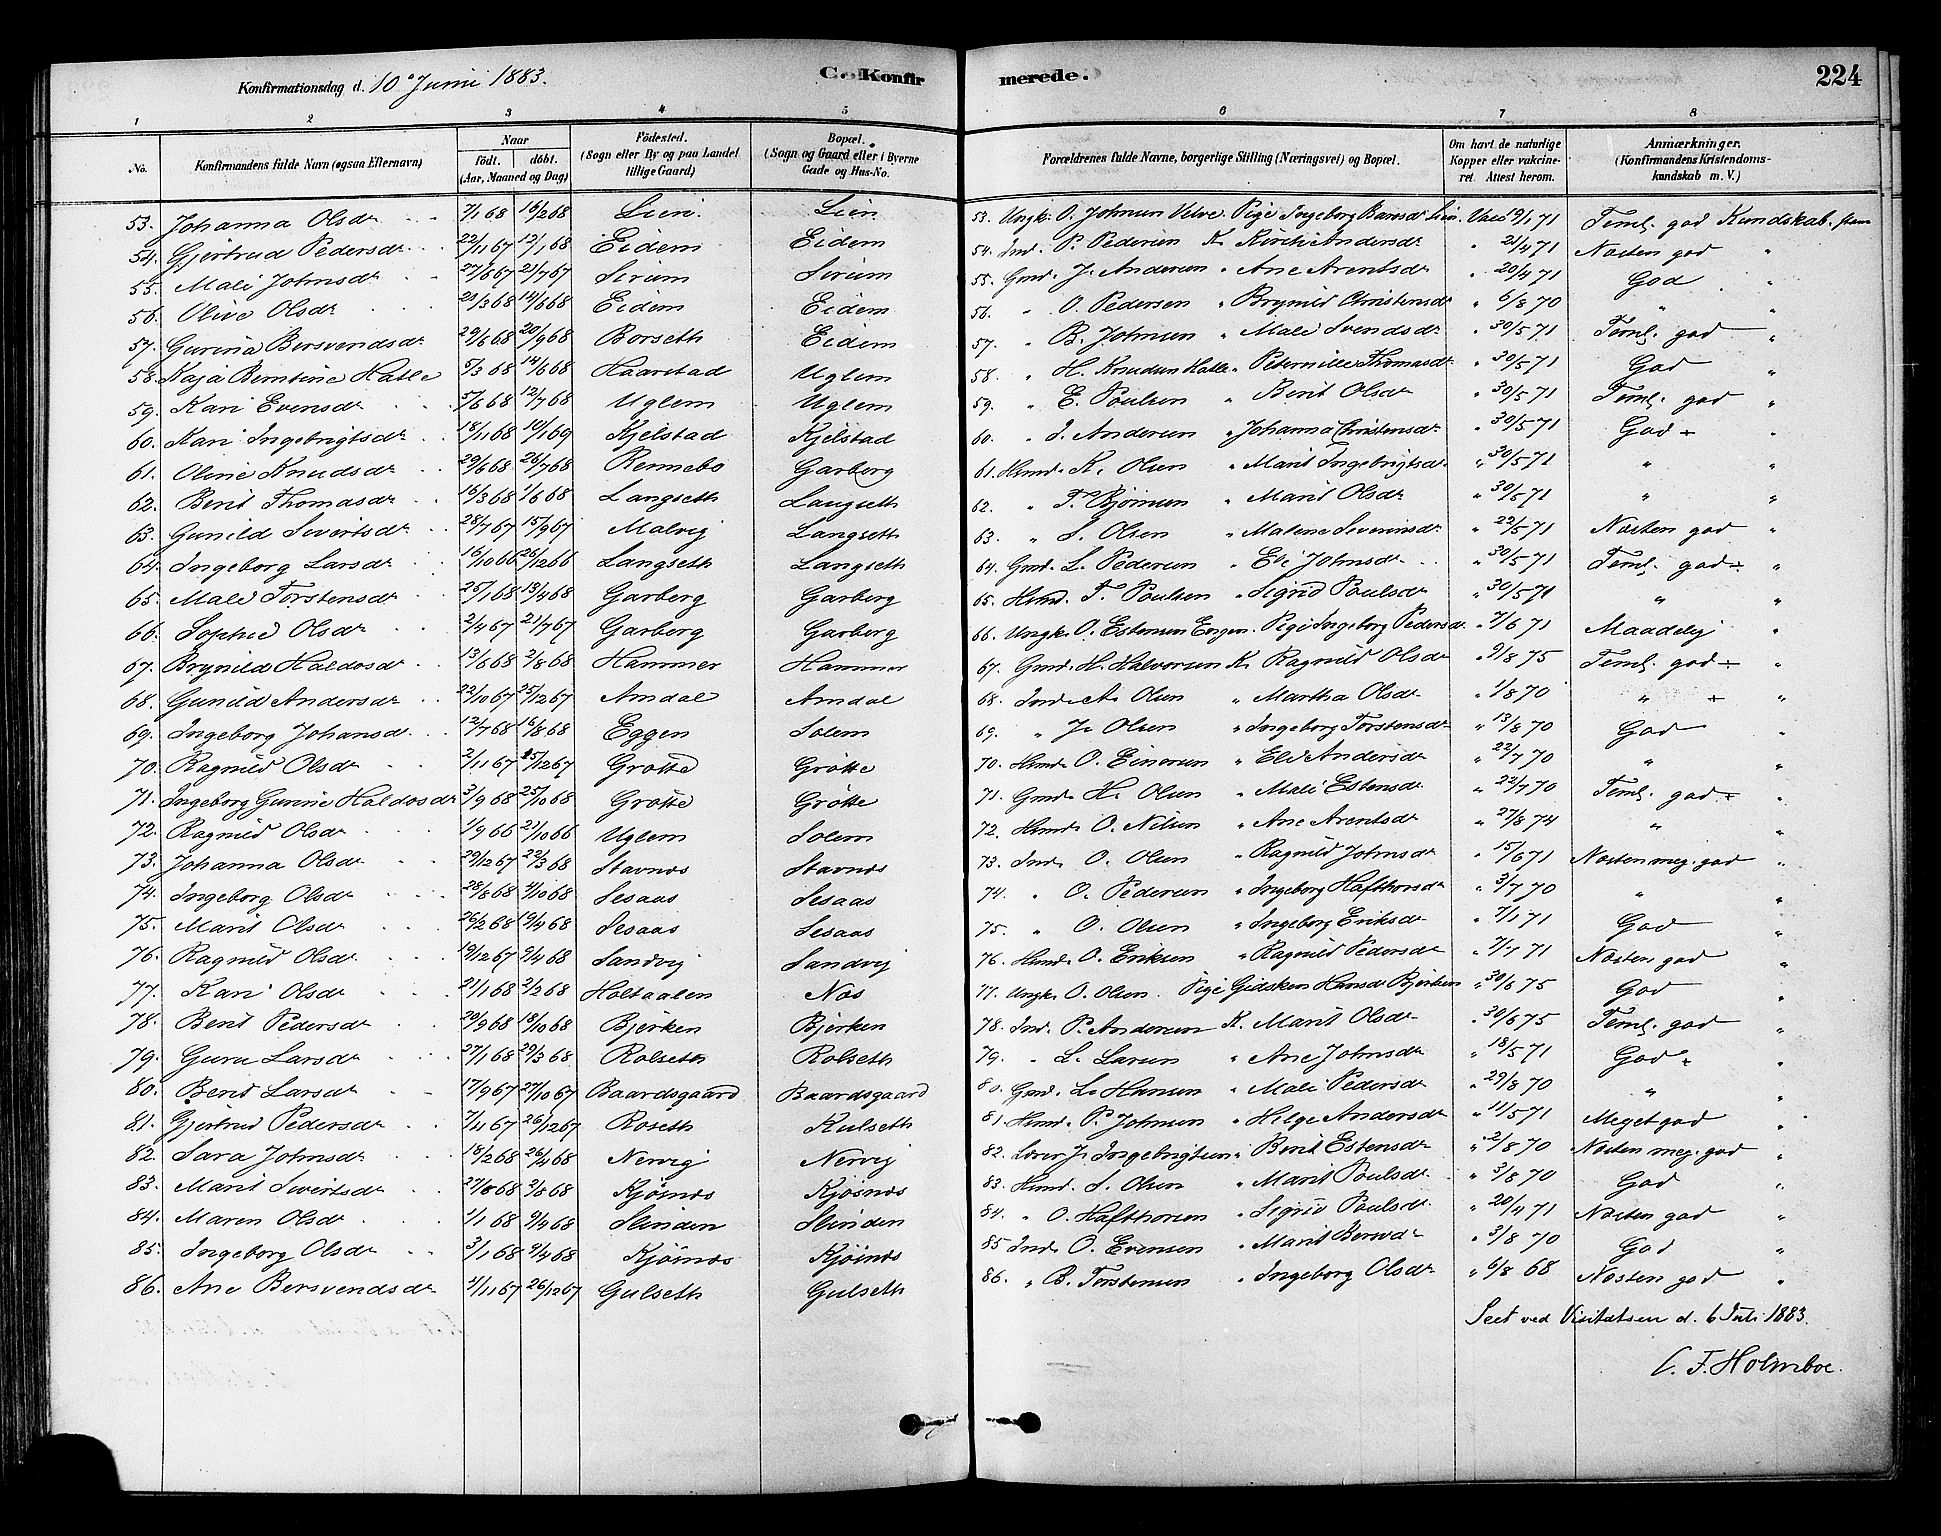 Konfirmationsdag d. 10de Juni 1883. C. Konfirmerede. 224
1 2 3 4 5 6 7 8
No. Konfirmandens fulde Navn (ogsaa Efternavn) Naar født. døbt. (Aar, Maaned og Dag) Fødested. (Sogn eller By og paa Landet tillige Gaard) Bopæl. (Sogn og Gaard eller i Byerne Gade og Hus-No. Forældrenes fulde Navne, borgerlige Stilling (Næringsvei) og Bopæl. Om havt de naturlige Kopper eller vakcineret. Attest herom. Anmærkninger. (Konfirmandens Kristendomskundskab m. V.)
53. Johanna Olsdr 7/1 68 16/2 68 Lien Lien 53. Ungk. O. Johnsen Pige Ingeborg Lien Vacc 9/1 71 Teml. god Kundskab.
54. Gjertrud Pedersdr 22/11 67 12/1 68 Eidem Eidem 54. Ind. P. Pedersen K. Kirsti Andersdr " 21/4 71 Næsten god "
55. Mali Johnsdr 27/6 67 21/7 67 Sirum Sirum 55. Gmd. J. Andersen " Ane Arentsdr " 20/4 71 God "
56. Olive Olsdr 21/3 68 14/6 68 Eidem Eidem 56. " O. Pedersen " Brynild Christensdr " 6/8 70 " "
57. Gurina Bersvendsdr 29/6 68 20/9 68 Borseth Eidem 57. " B. Johnsen " Mali Svendsdr " 30/5 71 Teml. god "
58. Kaja Berntine Halle 5/3 68 14/6 68 Haarstad Uglem 58. " H. Knudsen Halle " Peternille Thomasdr " 30/5 71 God "
59. Kari Evensdr 5/6 68 12/7 68 Uglem Uglem 59. " E. Poulsen " Berit Olsdr " 30/5 71 Teml. god "
60. Kari Ingebrigtsdr 18/11 68 10/1 69 Kjelstad Kjelstad 60. " I. Andersen " Johanna Christensdr " 30/5 71 God ÷ "
61. Oline Knudsdr 29/6 68 26/7 68 Rennebo Garberg 61. Husmd. K. Olsen " Marit Ingebrigtsdr " 30/5 71 " "
62. Berit Thomasdr 16/3 68 1/6 68 Langseth Langseth 62. " T. Bjørnsen " Marit Olsdr " 30/5 71 " "
63. Gunild Sivertsdr 28/7 67 15/9 67 Malvig Langseth 63. " S. Olsen " Malene Severinsdr " 22/5 71 Næsten god "
64. Ingeborg Larsdr 16/10 66 26/12 66 Langseth Langseth 64. Gmd. L. Pedersen " Eli Johnsdr " 30/5 71 Teml. god ÷ "
65. Mali Torstensdr 25/1 68 13/4 68 Garberg Garberg 65. Husmd. T. Poulsen " Sigrid Poulsdr " 30/5 71 " "
66. Sophie Olsdr 2/4 67 21/7 67 Garberg Garberg 66. Ungk. O. Estensen Engen. Pige Ingeborg Pedersdr " 7/6 71 Maadelig "
67. Brynild Haldosdr 13/6 68 2/8 68 Hammer Hammer 67. Gmd. H. Halvorsen K. Ragnild Olsdr " 9/8 75 Teml. god ÷ "
68. Gunild Andersdr 22/10 67 25/12 67 Amdal Amdal 68. Ind. A. Olsen " Martha Olsdr " 1/8 70 " ÷ "
69. Ingeborg Johansdr 12/7 68 16/8 68 Eggen Solem 69. " J. Olsen " Ingeborg Torstensdr " 13/8 70 God "
70. Ragnild Olsdr 2/11 67 25/12 67 Grøtte Grøtte 70. Husmd. O. Einersen " Eli Andersdr " 22/7 70 " "
71. Ingeborg Gurine Haldosdr 3/9 68 25/10 68 Grøtte Grøtte 71. Gmd. H. Olsen " Mali Estensdr " 22/7 70 Teml. god ÷ "
72. Ragnild Olsdr 1/9 66 21/10 66 Uglem Solem 72. Husmd. O. Nilsen " Ane Arentsdr " 27/8 74 " "
73. Johanna Olsdr 29/12 67 22/3 68 Stavnes Stavnes 73. Ind. O. Olsen " Ragnild Johnsdr " 15/6 71 Næsten meg. god "
74. Ingeborg Olsdr 28/8 68 4/10 68 Sesaas Sesaas 74. " O. Pedersen " Ingeborg Hafthorsdr " 3/7 70 " "
75. Marit Olsdr 26/2 68 19/4 68 Sesaas Sesaas 75. " O. Olsen " Ingeborg Eriksdr " 7/1 71 God "
76. Ragnild Olsdr 19/12 67 9/4 68 Sandvig Sandvig 76. Husmd. O. Eriksen " Ragnild Pedersdr " 7/1 71 Næsten god "
77. Kari Olsdr 21/1 68 2/2 68 Holtaalen Næs 77. Ungk. O. Olsen. Pige Gidsken Hansdr Bjerken " 30/6 75 God "
78. Berit Pedersdr 20/9 68 18/10 68 Bjerken Bjerken 78. Ind. P. Andersen K. Marit Olsdr " 30/6 75 Teml. god "
79. Guru Larsdr 27/1 68 29/3 68 Rolseth Rolseth 79. " L. Larsen " Ane Johnsdr " 18/5 71 God ÷ "
80. Berit Larsdr 17/9 67 27/10 67 Baardsgaard Baardsgaard 80. Gmd. L. Hansen " Mali Pedersdr " 29/8 70 " "
81. Gjertrud Pedersdr 7/11 67 26/12 67 Roseth Kulseth 81. Husmd. P. Johnsen " Hilge Andersdr " 11/5 71 Meget god "
82. Sara Johnsdr 18/2 68 26/4 68 Nervig Nervig 82. Lærer J. Ingebrigtsen " Berit Estensdr " 2/8 70 Næsten meg. god "
83. Marit Sivertsdr 27/8 68 Kjøsnæs Kjøsnæs 83. Husmd. S. Olsen " Marit Poulsdr " 3/8 70 God "
84. Maren Olsdr 1/1 68 9/4 68 Slinden Slinden 84. " O. Hafthorsen " Sigrid Poulsdr " 20/4 71 Næsten god "
85. Ingeborg Olsdr 3/1 68 9/4 68 Kjøsnæs Kjøsnæs 85. Ind. O. Evensen " Marit Bersvdr " 3/8 70 God "
86. Ane Bersvendsdr 4/11 67 26/12 67 Gulseth Gulseth 86. " B. Torstensen " Ingeborg Olsdr " 6/8 68 Næsten god "
Seet ved Visitatsen d. 6 Juli 1883.
C. F. Holmboe.